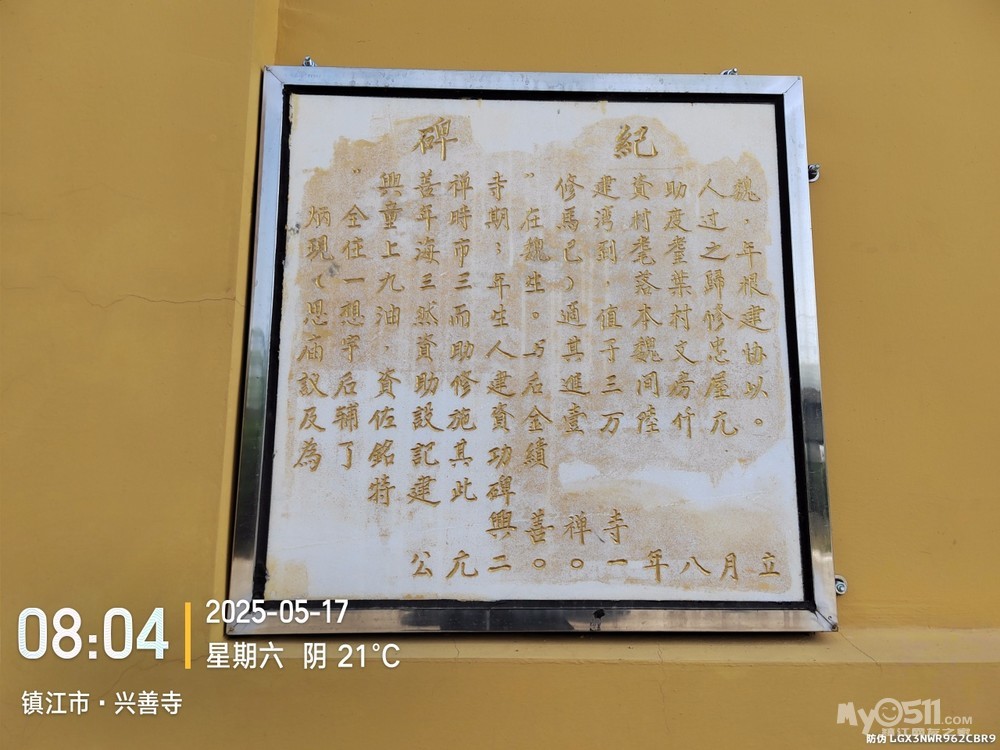 碑紀
"興善禅寺"修建資助人魏
炳全童年時期在馬湾村度过,
現住上海市;魏已到耄耋之年
(一九三三年生),落葉歸根
思想油然而生。適值本村修建
庙宇,資助人后其于魏文忠協
议后資助修建后進三間房屋以
及辅佐設施資金壹万陸仟元。
為了銘記其功績
特建此碑
興善禅寺
公元二〇〇一年八月立
08:04
2025-05-17
星期六 阴 21℃
镇江市·兴善寺
My0511.COM
防伪 LGX3NWR962CBR9